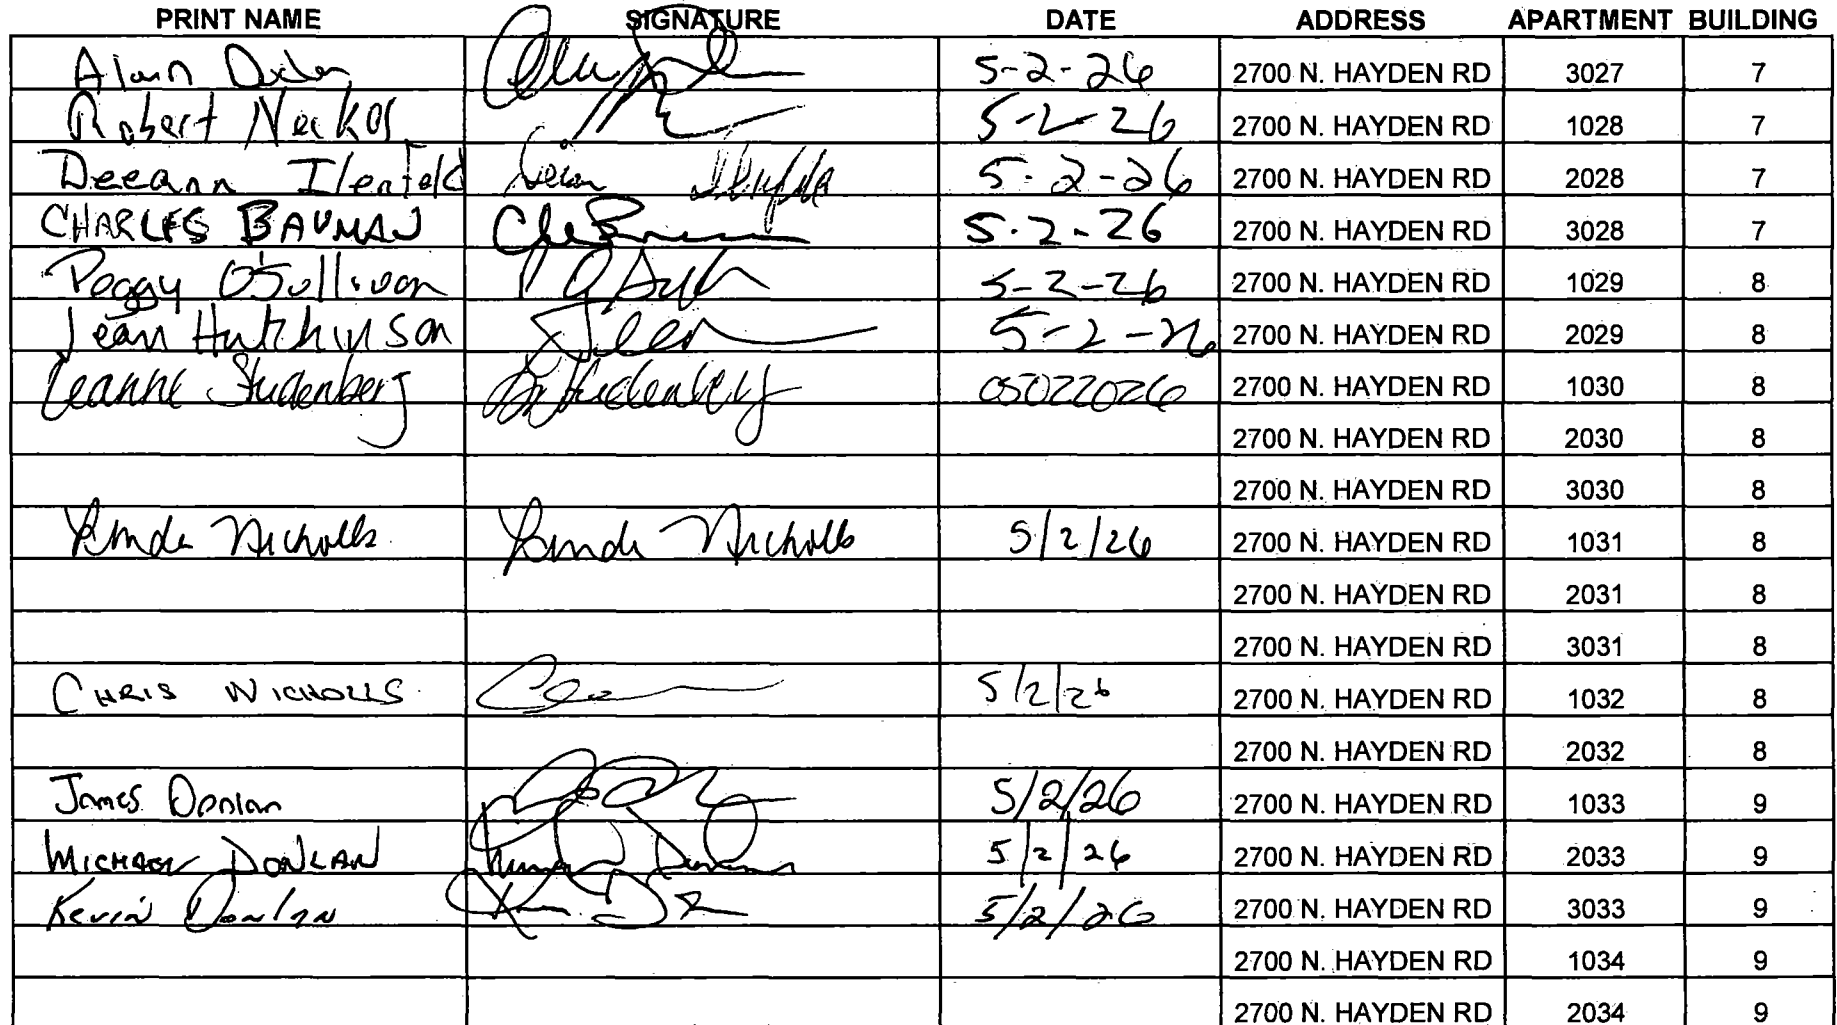 PRINT NAME SIGNATURE DATE ADDRESS APARTMENT BUILDING
Alan 5-2-26 2700 N. HAYDEN RD 3027 7
Robert 5-2-26 2700 N. HAYDEN RD 1028 7
Deeann Ilenfeld 5-2-26 2700 N. HAYDEN RD 2028 7
CHARLES BAUMAN 5-2-26 2700 N. HAYDEN RD 3028 7
Peggy O'Sullivan 5-2-26 2700 N. HAYDEN RD 1029 8
Jean Hutchinson 5-2-26 2700 N. HAYDEN RD 2029 8
Leanne Studenberg 05022026 2700 N. HAYDEN RD 1030 8
2700 N. HAYDEN RD 2030 8
2700 N. HAYDEN RD 3030 8
Linda Nicholls Linda Nicholls 5/2/26 2700 N. HAYDEN RD 1031 8
2700 N. HAYDEN RD 2031 8
2700 N. HAYDEN RD 3031 8
CHRIS NICHOLLS 5/2/26 2700 N. HAYDEN RD 1032 8
2700 N. HAYDEN RD 2032 8
James Donlan 5/2/26 2700 N. HAYDEN RD 1033 9
MICHAEL DONLAN 5/2/26 2700 N. HAYDEN RD 2033 9
Kevin Donlan 5/2/26 2700 N. HAYDEN RD 3033 9
2700 N. HAYDEN RD 1034 9
2700 N. HAYDEN RD 2034 9